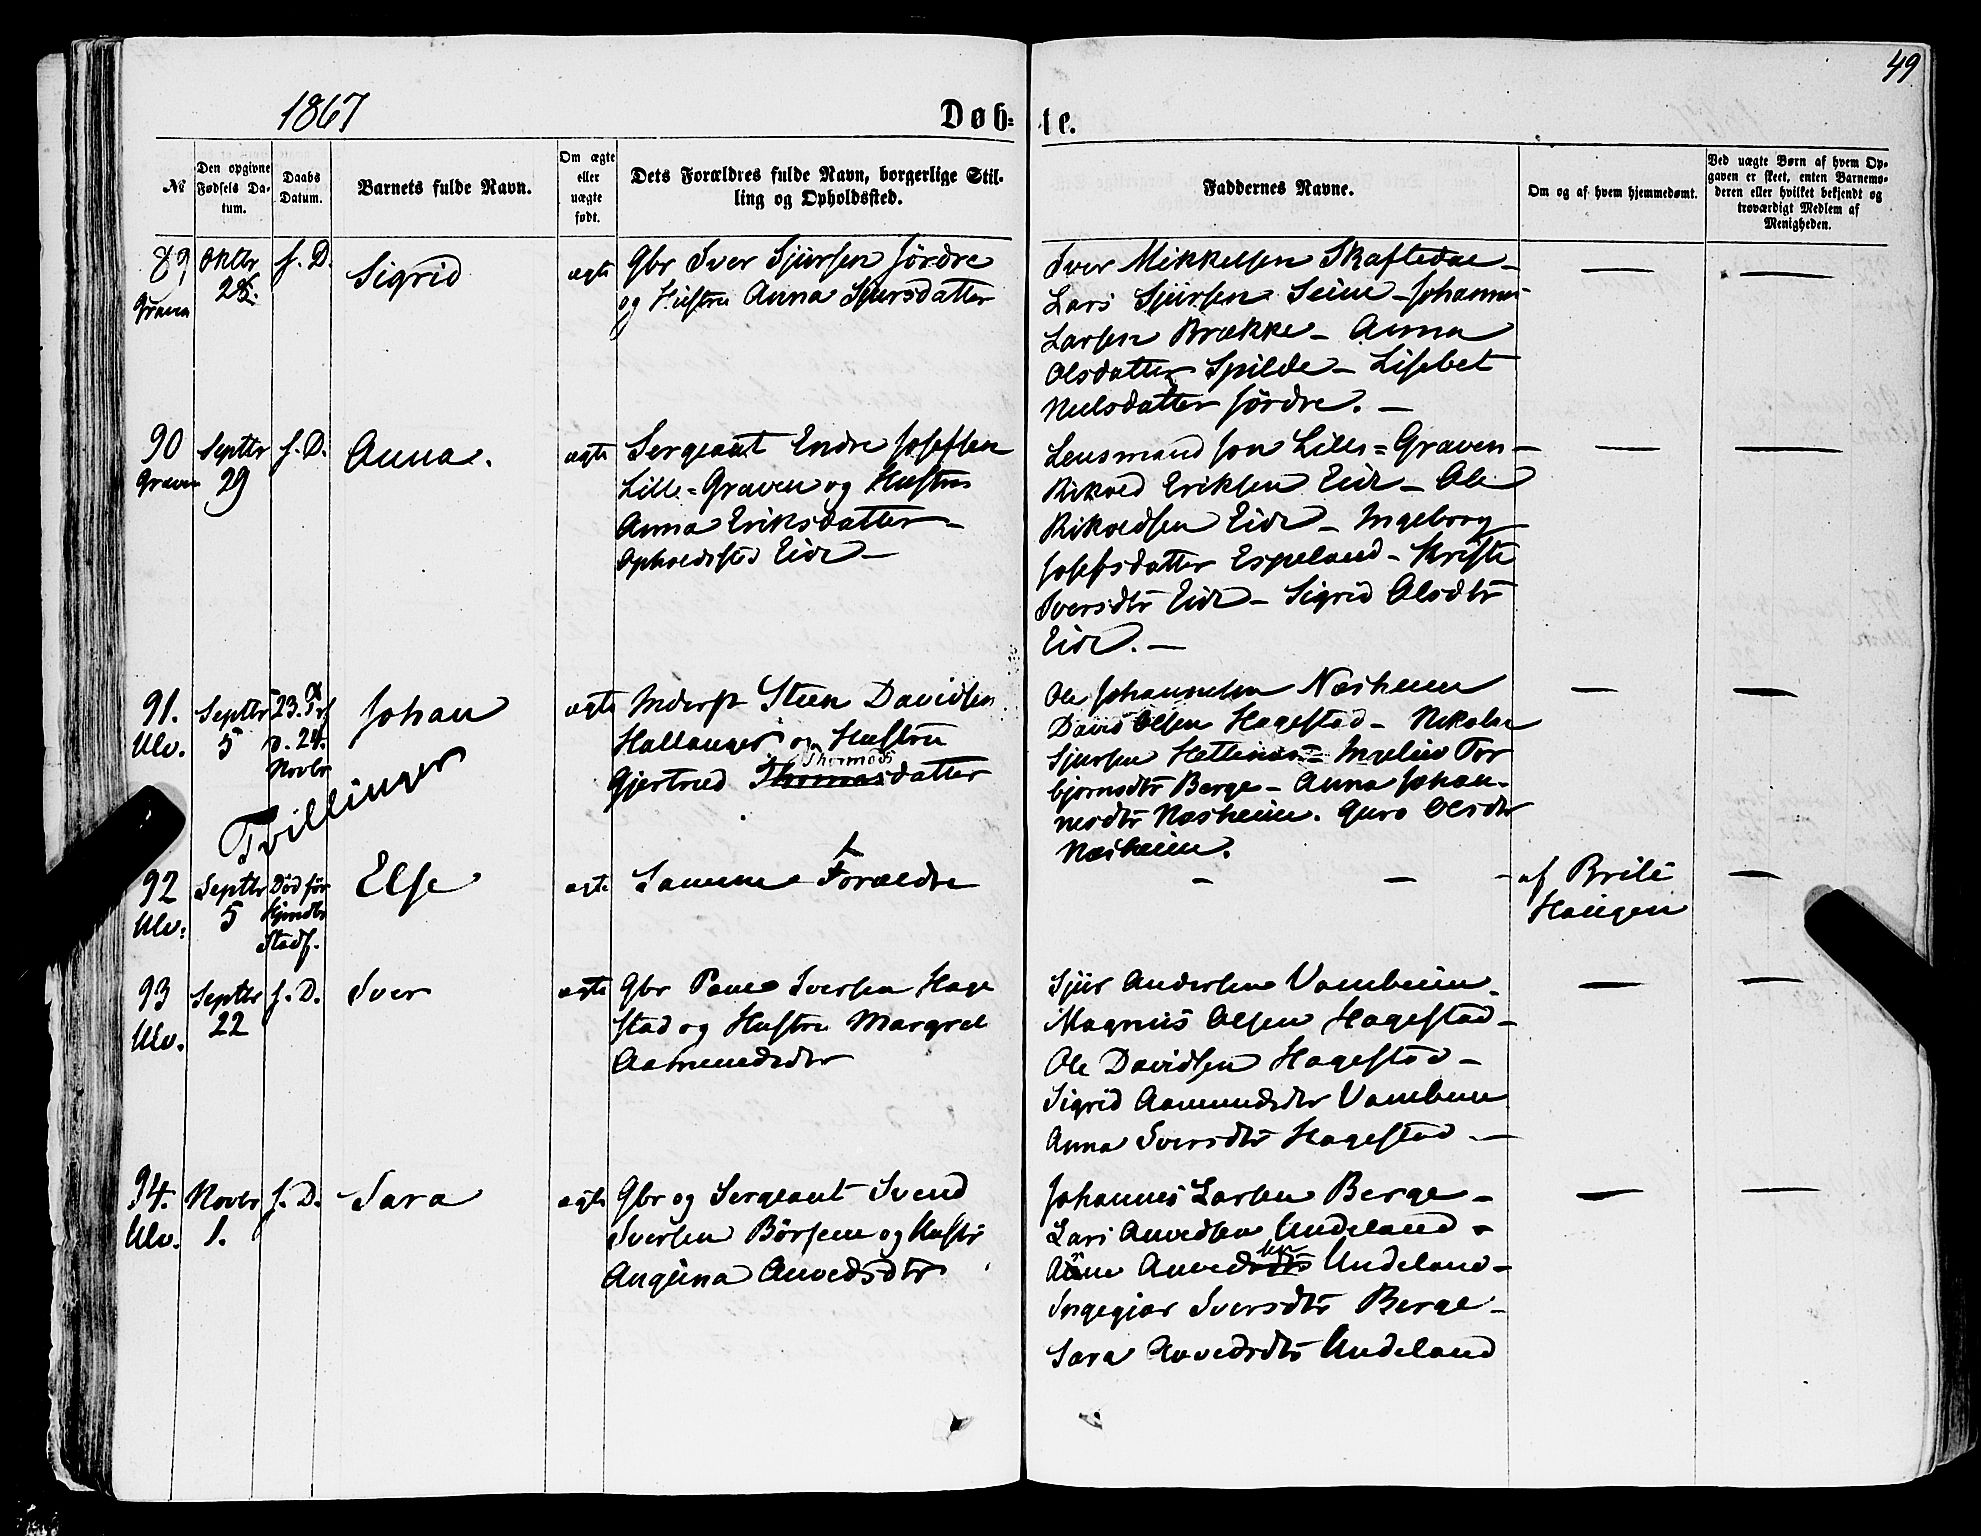 49
1867
Døb-
te.
№
Den opgivne Fødsels Da-
tum.
Daabs
Datum.
Barnets fulde Navn.
Om ægte
eller
uægte
født.
Dets Forældres fulde Navn, borgerlige Stil-
ling og Opholdssted.
Faddernes Navne.
Om og af hvem hjemmedømt.
Ved uægte Børn af hvem Op-
gaven er skeet, enten Barnemo-
deren eller hvilket bekjendt og
troværdigt Medlem af
Menigheden.
89
Graven
Oktbr
28.
s. D.
Sigrid
ægte
Gbr Iver Sjursen Førdre
og Hustru Anna Sjursdatter
Iver Mikkelsen Skaftedal -
Lars Sjursen Seim - Johannes
Larsen Brække - Anna
Olsdatter Spilde - Lisebet
Nielsdatter Førdre. -
90
Graven
Septbr
29
s. D.
Anna.
ægte
Sergeant Endre Josefsen
Lille-Graven og Hustru
Anna Eriksdatter -
Opholdssted Eide -
Lensmand Jon Lille-Graven -
Rikold Eriksen Eide - Ole
Rikoldsen Eide - Ingeborg
Josefsdatter Espeland - Kristi
Iversdtr Eide - Sigrid Olsdtr
Eide. -
91.
Ulv.
Septbr
5
23. S. e. Trf
d. 24.
Novbr
Johan
ægte
Inderst Steen Davidsen
Hallanger og Hustru
Gjertrud Thormods
Thomasdatter
Ole Johannesen Næsheim
David Olsen Hagestad - Nikolai
Sjursen Hellenes - Ingeliv Tor
bjørnsdtr Berge - Anna Johan-
nesdtr Næsheim. Guro Olsdtr
Næsheim.
Tvillinger
92
Ulv.
Septbr
5
Død før
Hjmdbs
Stadf.
Else
ægte
Samme Forældre
af Brite
Haugen
93
Ulv.
Septbr
22
s. D.
Iver
ægte
Gbr Poul Iversen Hage
stad og Hustru Margret
Aamundsdtr
Sjur Andersen Vambheim -
Magnus Olsen Hagestad -
Ole Davidsen Hagestad -
Sigrid Aamundsdtr Vambheim
Anna Iversdtr Hagestad -
94.
Ulv.
Novbr
1.
s. D.
Sara
ægte
Gbr og Sergeant Svend
Iversen Børsem og Hustr
Anguna Anvedsdtr
Johannes Larsen Berge -
Lars Anvedsen Undeland -
Anvedsen Undeland -
Ingegjær Iversdtr Berge -
Sara Anvedsdtr Undeland